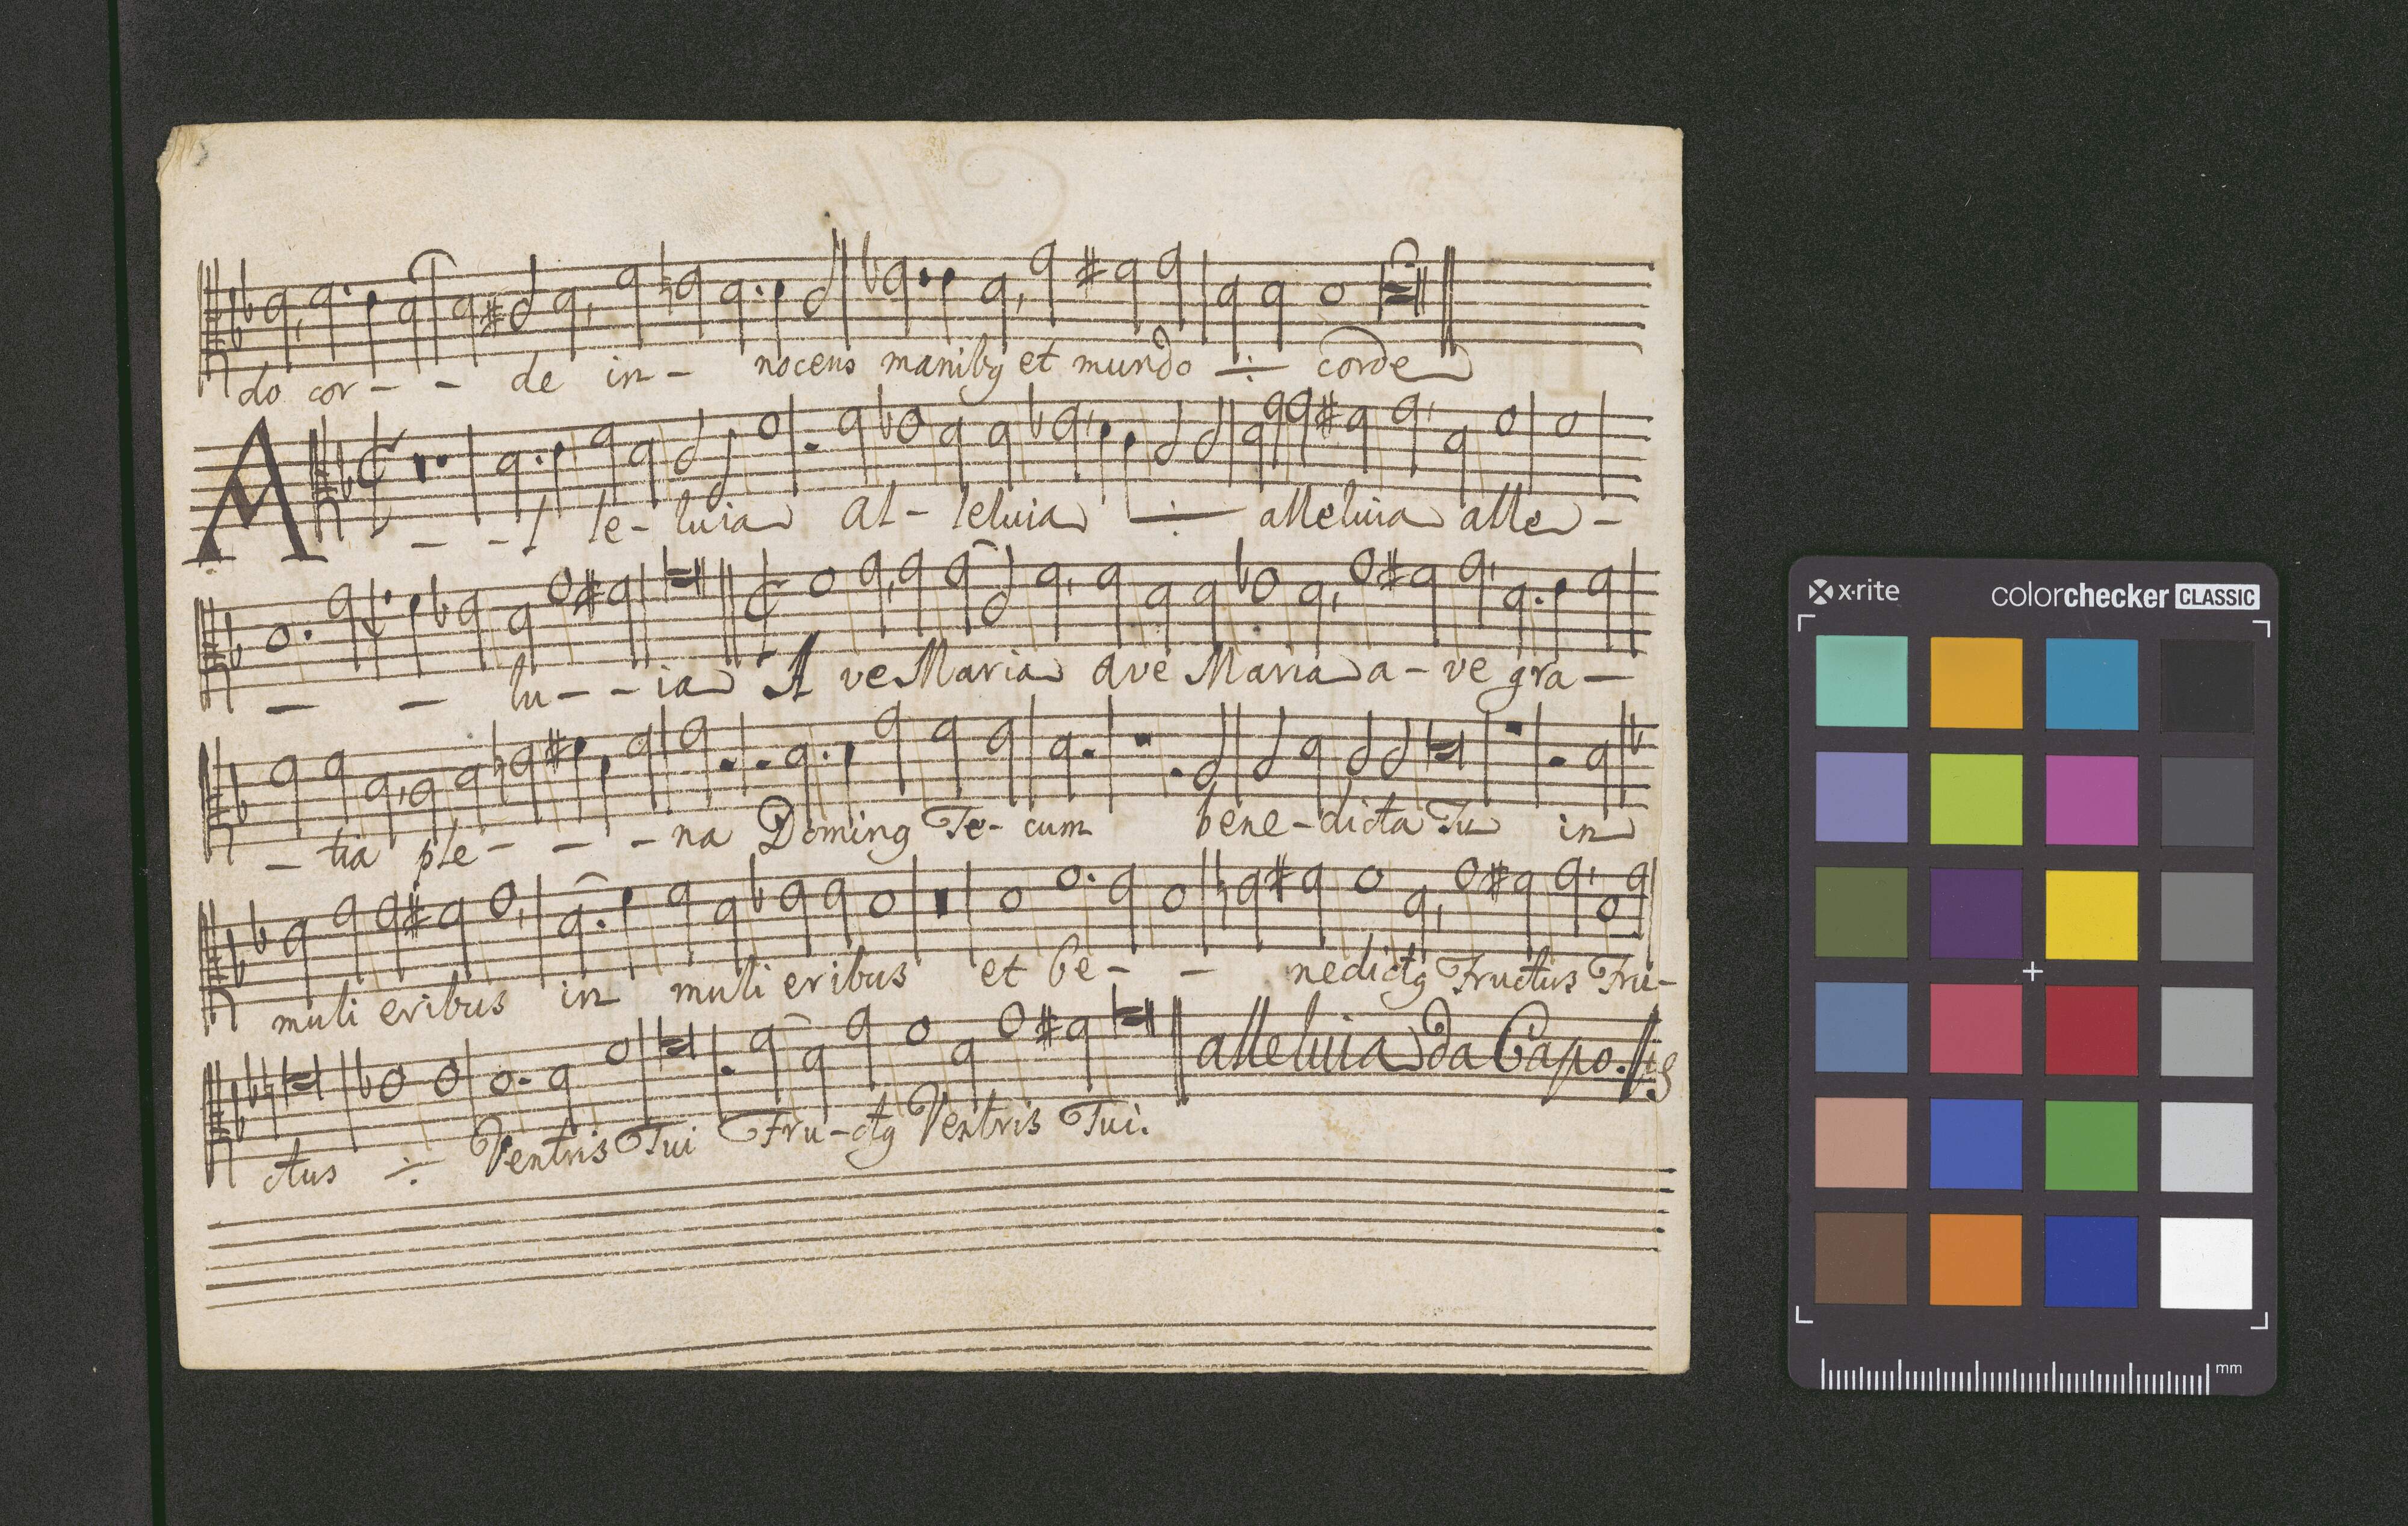 do cor - - de in - nocens manibꝰ et mundo ÷ corde
A - - l le - luia Al - leluia ÷ alleluia alle -
- - lu - - ia A ve Maria ave Maria a - ve gra -
- tia ple - - - na Dominꝰ Te - cum bene - dicta Tu in
muli eribus in muli eribus et be - - nedictꝰ Fructus Fru -
ctus ÷ Ventris Tui Fru - ctꝰ Ventris Tui. alleluia da Capo.
x·rite colorchecker CLASSIC
mm